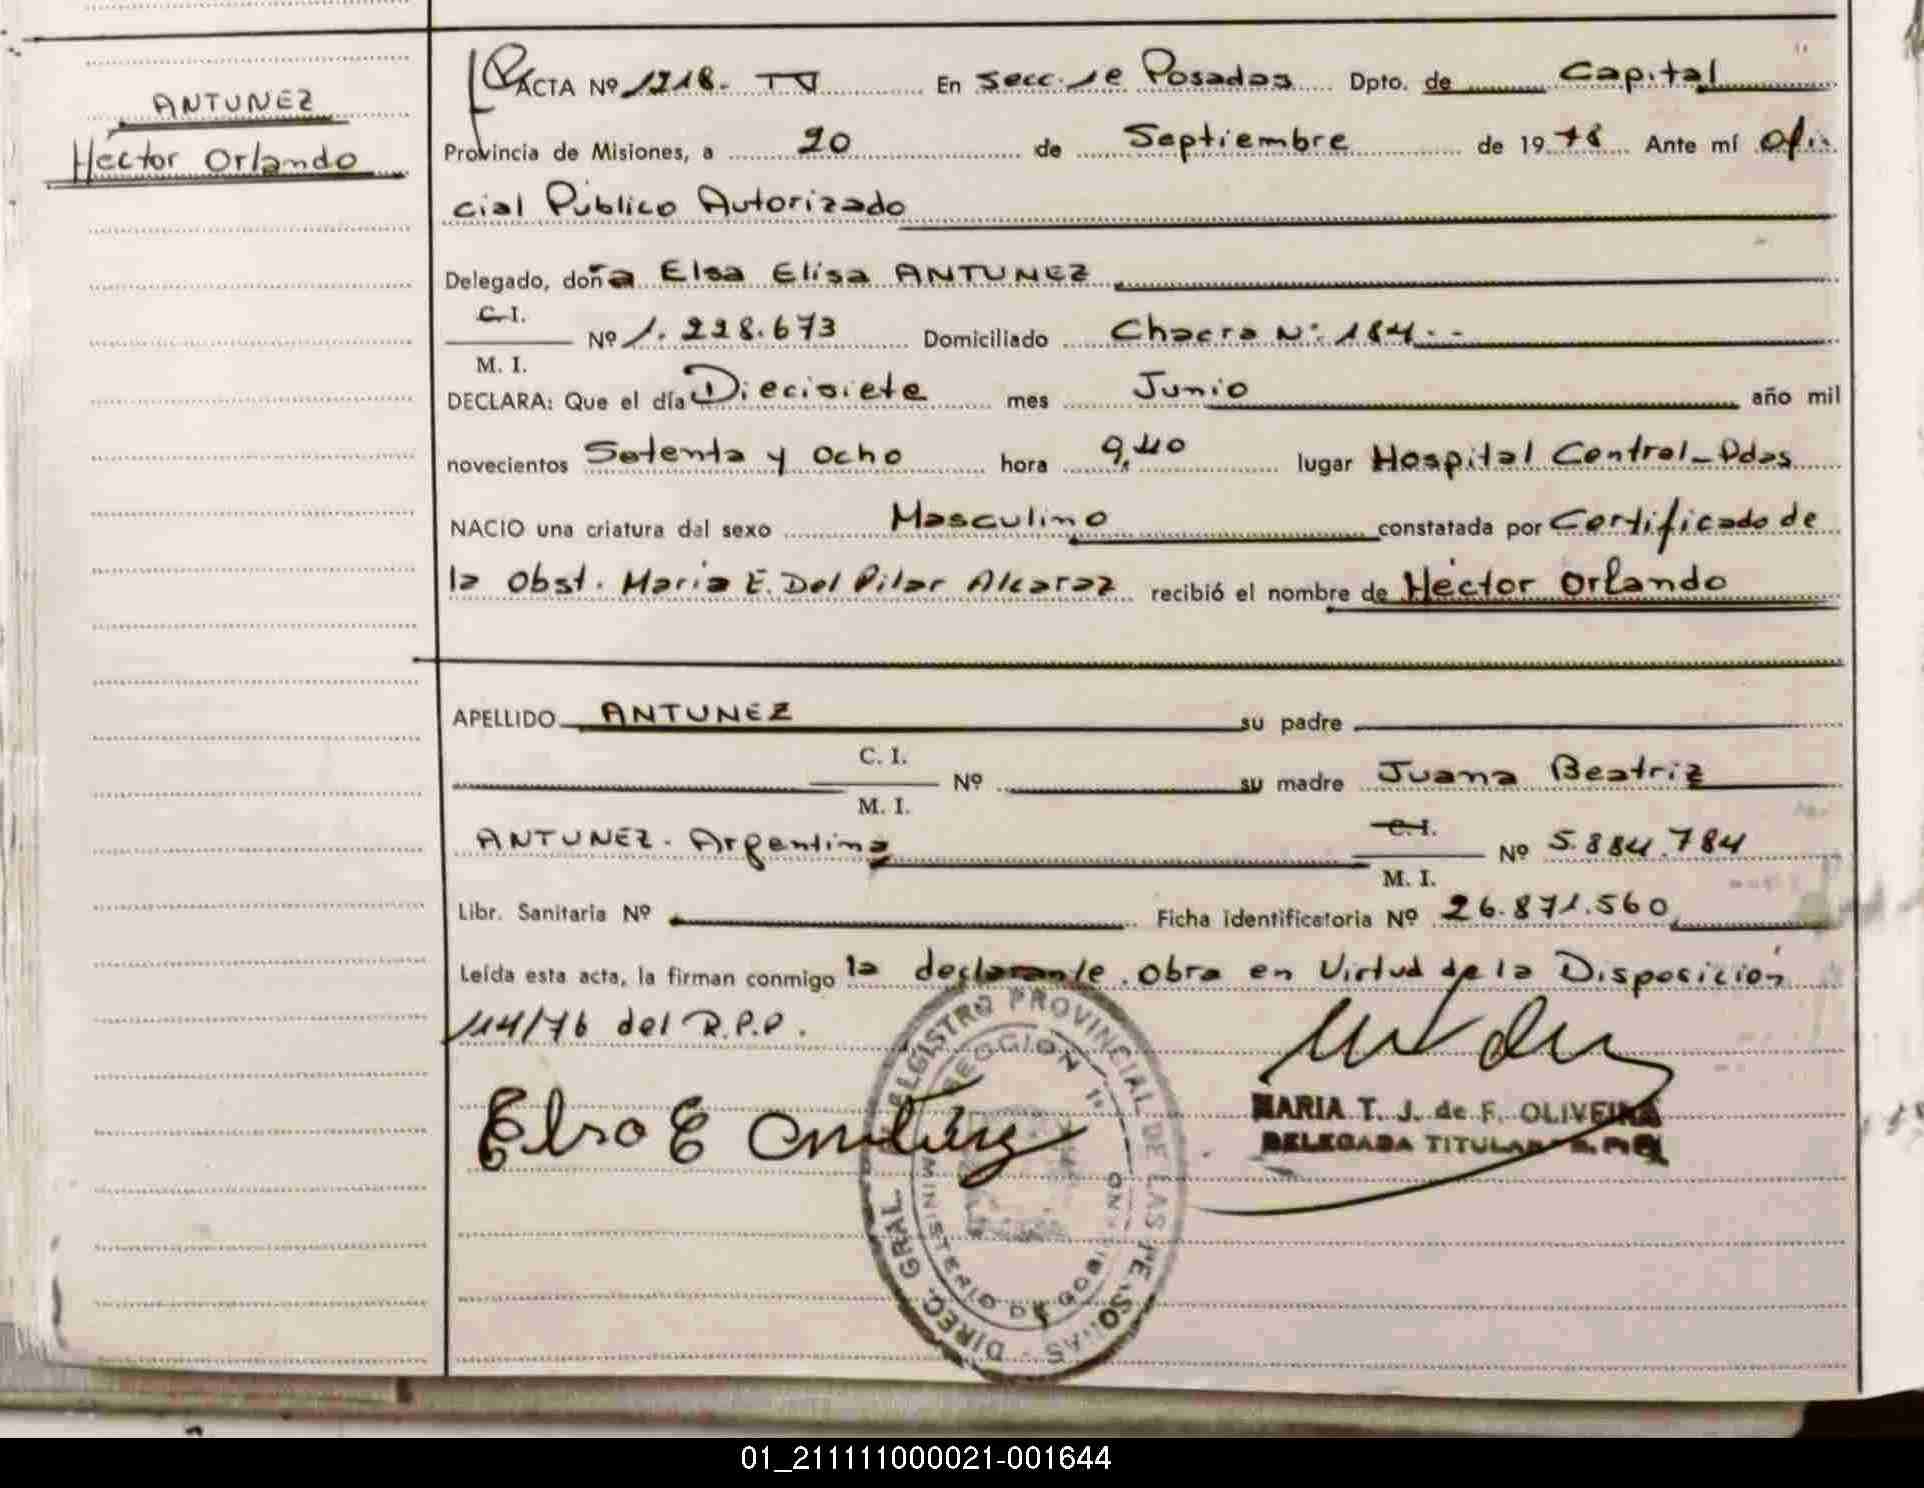 ANTUNEZ
Hector Orlando
ACTA Nº 1218. TV En secc. 1e Posadas Dpto. de Capital
Provincia de Misiones, a 20 de Septiembre de 1978 Ante mí Ofi-
cial Público Autorizado
Delegado, doña Elsa Elisa ANTUNEZ
C. I.
M. I. Nº 1.228.673 Domiciliado Chacra Nº 184.--
DECLARA: Que el día Diecisiete mes Junio año mil
novecientos Setenta y Ocho hora 9,40 lugar Hospital Central-Pdas
NACIO una criatura del sexo Masculino constatada por Certificado de
la Obst. Maria E. Del Pilar Alcaraz recibió el nombre de Héctor Orlando
APELLIDO ANTUNEZ su padre
C. I.
M. I. Nº su madre Juana Beatriz
ANTUNEZ. Argentina C. I.
M. I. Nº 5.884.784
Libr. Sanitaria Nº Ficha identificatoria Nº 26.871.560
Leída esta acta, la firman conmigo la declarante. obra en Virtud de la Disposición
114/76 del R.P.P.
Elsa E Antúnez
MARIA T. J. de F. OLIVEIRA
DELEGADA TITULAR
DIREC. GRAL. REGISTRO PROVINCIAL DE LAS PERSONAS
SECCION 1ª
MINISTERIO DE GOBIERNO
01_211111000021-001644